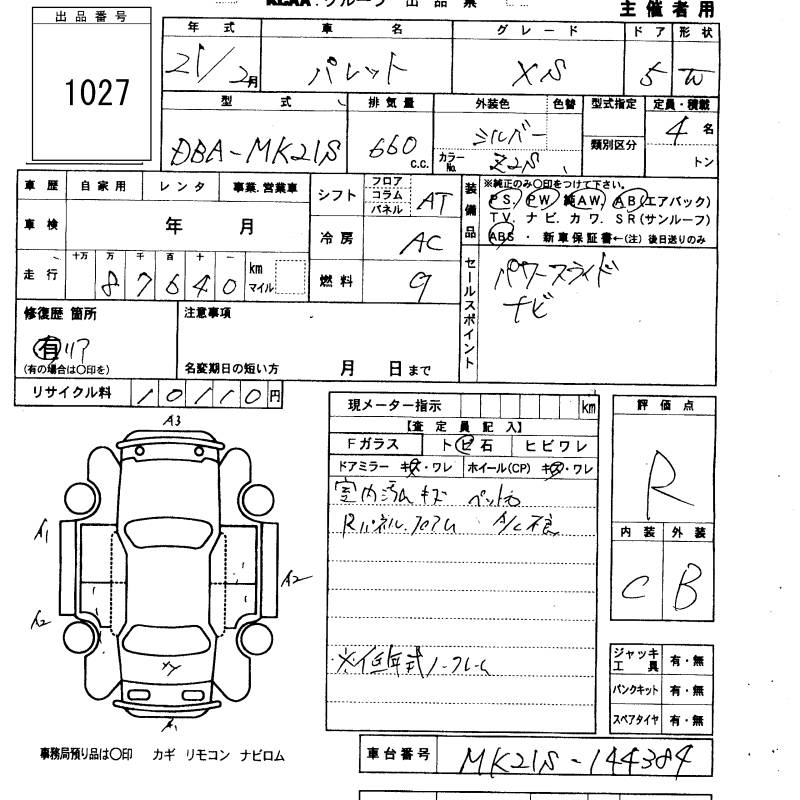 KCAA.グループ 出品票
主催者用
出品番号
1027
年式 車名 グレード ドア 形状
21/2月 パレット XS 5 W
型式 排気量 外装色 色替 型式指定 定員・積載
DBA-MK21S 660 c.c. シルバー 類別区分 4名
カラーNo. Z2S トン
車歴 自家用 レンタ 事業.営業車
シフト フロア コラム パネル AT
装備品 ※純正のみ○印をつけて下さい。
PS. PW 純AW. AB(エアバック)
TV. ナビ. カワ. SR(サンルーフ)
ABS ・ 新車保証書←(注) 後日送りのみ
車検 年 月
冷房 AC
走行 十万 万 千 百 十 一
87640 km マイル
燃料 9
セールスポイント
パワースライド
ナビ
修復歴 箇所
有 リア
(有の場合は○印を)
注意事項
名変期日の短い方 月 日まで
リサイクル料 10110円
現メーター指示 km
【査定員記入】
Fガラス トビ石 ヒビワレ
ドアミラー キズ・ワレ ホイール(CP) キズ・ワレ
室内汚ム キズ ペット
Rパネル.フロアム A/C不良
※低年式ノークレーム
評価点
R
内装 外装
C B
A3
A1
A2
A2
A1
ジャッキ工具 有・無
パンクキット 有・無
スペアタイヤ 有・無
事務局預り品は○印 カギ リモコン ナビロム
車台番号 MK21S-144384